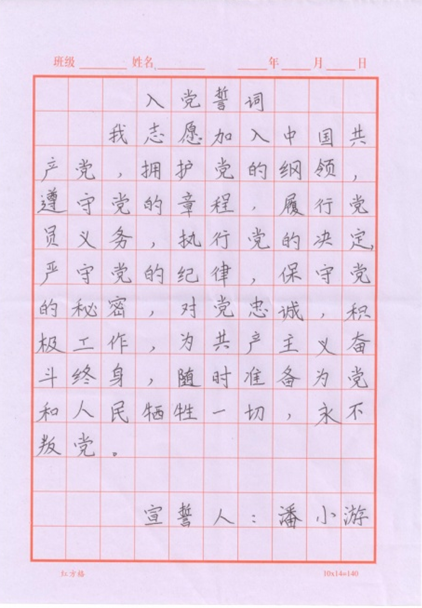 班级 姓名 年 月 日
入党誓词
我志愿加入中国共
产党，拥护党的纲领，
遵守党的章程，履行党
员义务，执行党的决定，
严守党的纪律，保守党
的秘密，对党忠诚，积
极工作，为共产主义奋
斗终身，随时准备为党
和人民牺牲一切，永不
叛党。
宣誓人：潘小游
红方格 10x14=140